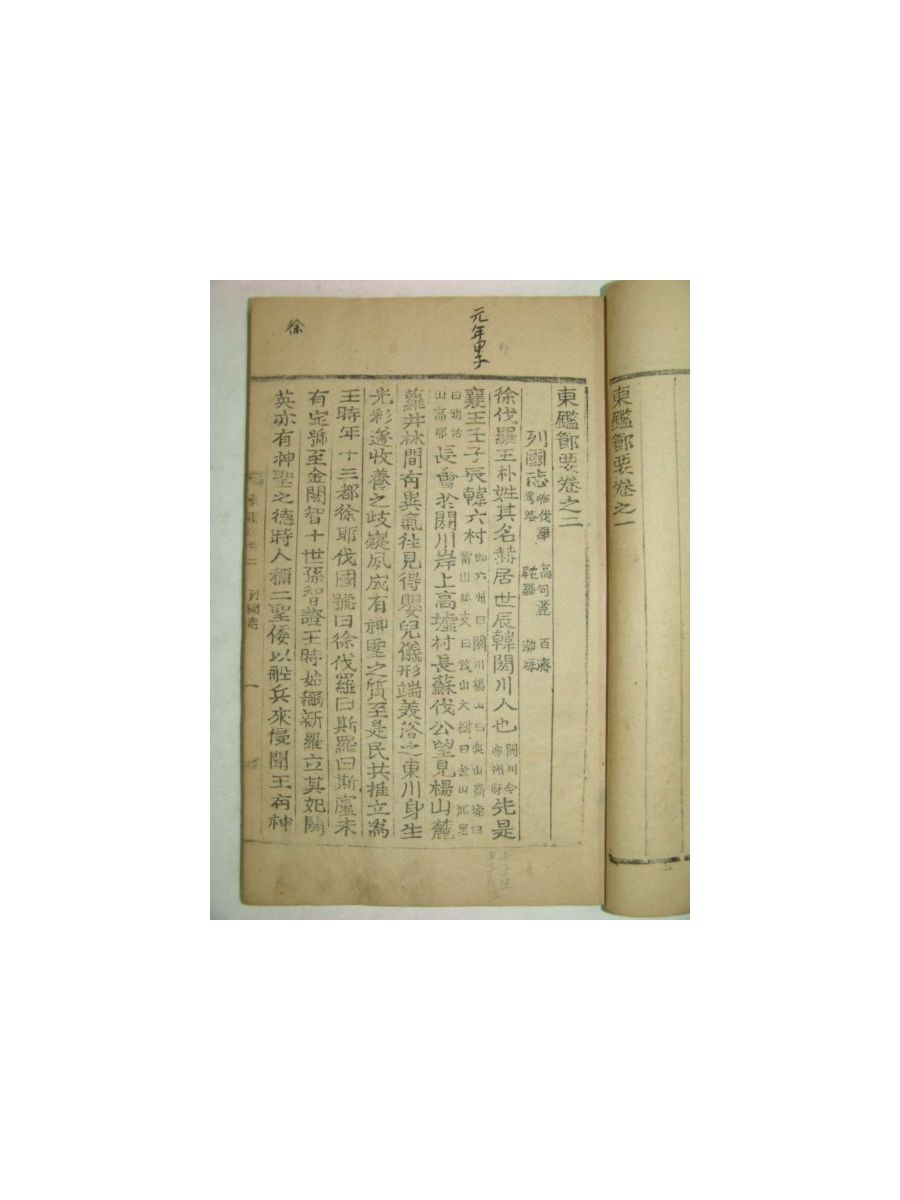 東鑑節要卷之一
東鑑節要卷之二
列國志 徐伐羅 高句麗 百濟 駕洛 乇羅 渤海
元年甲子
徐伐羅王朴姓其名赫居世辰韓閼川人也 閼川今慶州府 先是
襄王壬子辰韓六村 卽六州曰閼川楊山曰突山高墟曰 山珍支曰茂山大樹曰金山加里曰明活山高耶 長會於閼川岸上高墟村長蘇伐公望見楊山麓
蘿井林間有異氣往見得嬰兒儀形端美浴之東川身生
光彩遂收養之歧嶷夙成有神聖之質至是民共推立爲
王時年十三都徐耶伐國號曰徐伐羅曰斯羅曰斯盧未
有定號至金閼智十世孫智證王時始稱新羅立其妃閼
徐
英亦有神聖之德時人稱二聖倭以船兵來侵聞王有神
列國志 一